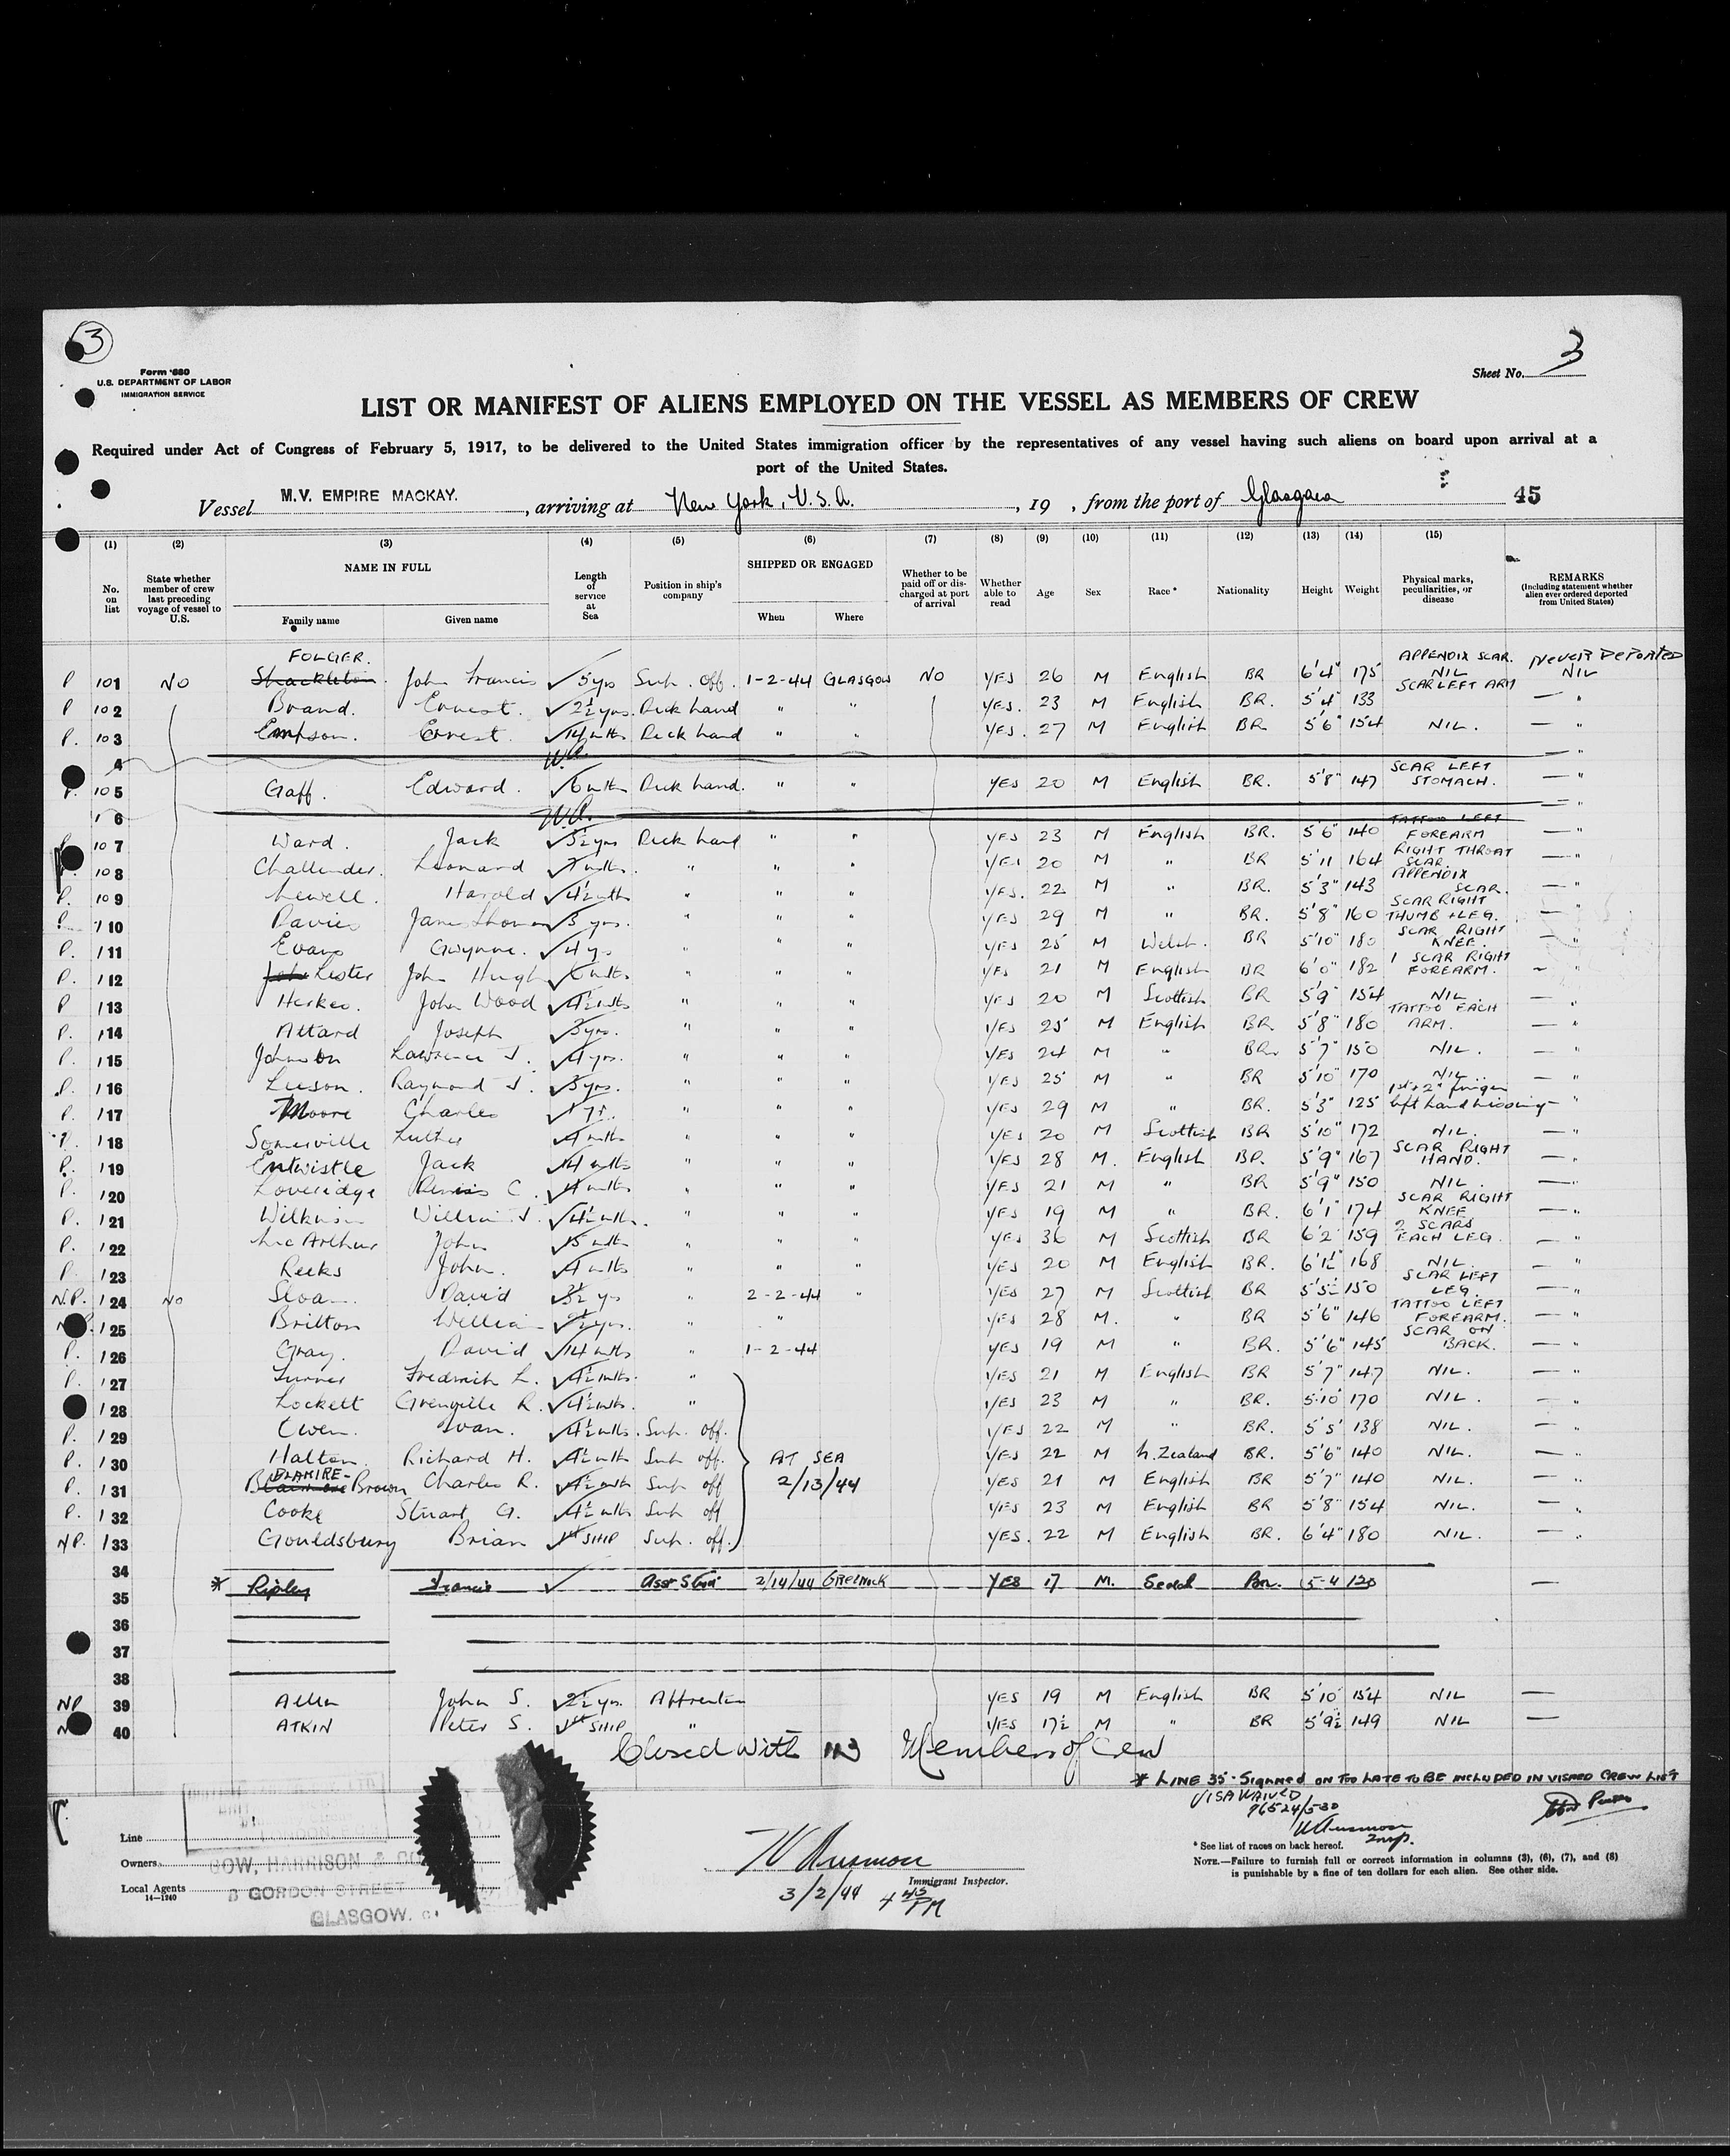 3
Form 680
U.S. DEPARTMENT OF LABOR
IMMIGRATION SERVICE
Sheet No. 3
LIST OR MANIFEST OF ALIENS EMPLOYED ON THE VESSEL AS MEMBERS OF CREW
Required under Act of Congress of February 5, 1917, to be delivered to the United States immigration officer by the representatives of any vessel having such aliens on board upon arrival at a
port of the United States.
Vessel M.V. EMPIRE MACKAY. , arriving at New York, U.S.A. , 19 , from the port of Glasgow 45
(1) (2) (3) (4) (5) (6) (7) (8) (9) (10) (11) (12) (13) (14) (15)
No. on list State whether member of crew last preceding voyage of vessel to U.S. NAME IN FULL Family name Given name Length of service at Sea Position in ship's company SHIPPED OR ENGAGED When Where Whether to be paid off or discharged at port of arrival Whether able to read Age Sex Race* Nationality Height Weight Physical marks, peculiarities, or disease REMARKS (Including statement whether alien ever ordered deported from United States)
FOLGER. APPENDIX SCAR. NEVER DEPORTED
P 101 NO Shackleton John Francis 5 yrs Sub. off. 1-2-44 GLASGOW NO YES 26 M English BR 6'4" 175 NIL NIL
P 102 Brand. Ernest. 2½ yrs. Deck hand " " YES. 23 M English BR. 5'4" 133 SCAR LEFT ARM — "
P. 103 Empson. Ernest. 14 mths Deck hand " " YES. 27 M English BR 5'6" 154 NIL. — "
4 — "
P. 105 Gaff. Edward. 6 mths Deck hand. " " YES 20 M English BR. 5'8" 147 SCAR LEFT STOMACH. — "
6 — "
P 107 Ward. Jack 3½ yrs Deck hand " " YES 23 M English BR. 5'6" 140 TATTOO LEFT FOREARM — "
P. 108 Challender. Leonard mths. " " " YES 20 M " BR 5'11 164 RIGHT THROAT SCAR. — "
P. 109 Lewell. Harold 4½ mths " " " YES. 22 M " BR. 5'3" 143 APPENDIX SCAR. — "
P. 110 Davies James Thomas 3 yrs. " " " YES 29 M " BR. 5'8" 160 SCAR RIGHT THUMB + LEG. — "
P. 111 Evans Gwynne. 4 ys " " " YES 25 M Welsh. BR 5'10" 180 SCAR RIGHT KNEE. — "
P. 112 John Lester John Hugh 6 mths " " " YES 21 M English BR 6'0" 182 1 SCAR RIGHT FOREARM. — "
P 113 John Wood 4½ mths " " " YES 20 M Scottish BR 5'9" 154 NIL. — "
P. 114 Attard Joseph 3 yrs. " " " YES 25 M English BR. 5'8" 180 TATTOO EACH ARM. — "
P. 115 Johnston Lawrence J. 4 yrs. " " " YES 24 M " BR. 5'7" 150 NIL. — "
P. 116 Leeson. Raymond J. 3 yrs. " " " YES 25 M " BR 5'10" 170 NIL. — "
P. 117 Moore Charles 1 yr. " " " YES 29 M " BR. 5'3" 125 1st + 2nd finger left hand missing — "
P. 118 Somerville Luther 4 mths " " " YES 20 M Scottish BR 5'10" 172 NIL. — "
P. 119 Entwistle Jack 14 mths " " " YES 28 M. English BR. 5'9" 167 SCAR RIGHT HAND. — "
P. 120 Loveridge Dennis C. 4 mths " " " YES 21 M " BR 5'9" 150 NIL. — "
P. 121 Wilkinson William J. 4½ mths. " " " YES 19 M " BR. 6'1" 174 SCAR RIGHT KNEE — "
P. 122 McArthur John 15 mths " " " YES 36 M Scottish BR 6'2 159 2 SCARS EACH LEG. — "
P. 123 Reeks John. 4 mths " " " YES 20 M English BR. 6'1½" 168 NIL. — "
N.P. 124 NO Sloan David 3½ ys " 2-2-44 " YES 27 M Scottish BR 5'5½" 150 SCAR LEFT LEG. — "
N.P. 125 Britton William yrs. " " YES 28 M. " BR 5'6" 146 TATTOO LEFT FOREARM. — "
P. 126 Gray. David 14 mths " 1-2-44 YES 19 M " BR. 5'6" 145 SCAR ON BACK. — "
P. 127 Turner Fredrick L. 4½ mths. " YES 21 M English BR 5'7" 147 NIL. — "
128 Lockett Grenville R. 4½ mths. " YES 23 M " BR. 5'10" 170 NIL. — "
P. 129 Owen. Ivan. 4½ mths. Sub. off. YES 22 M " BR. 5'5' 138 NIL. — "
P. 130 Halton Richard H. 4½ mth Sub off. AT SEA YES 22 M N. Zealand BR. 5'6" 140 NIL. — "
P. 131 BLAKIRE- Brown Charles R. 4½ mth Sub off 2/13/44 YES 21 M English BR 5'7" 140 NIL. — "
P. 132 Cooke Stuart G. 4½ mths Sub off YES 23 M English BR 5'8" 154 NIL. — "
NP. 133 Gouldsbury Brian 1st SHIP Sub. off. YES. 22 M English BR. 6'4" 180 NIL. — "
34
* 35 Ripley Francis Asst Stwd 2/14/44 GREENOCK YES 17 M. Scotd Br. 5-4 120 —
36
37
38
NP 39 Allen John S. 2½ yrs. Apprentice YES 19 M English BR 5'10" 154 NIL —
40 ATKIN Peter S. 1st SHIP " YES 17½ M " BR 5'9½ 149 NIL —
Closed with 113 Members of Crew
* LINE 35 - Signed ON TOO LATE TO BE INCLUDED IN VISAED CREW LIST
VISA WAIVED
96524/530
Insp.
Line
Owners
GOW, HARRISON & CO
Local Agents 8 GORDON STREET
14—1240
GLASGOW. C1
Immigrant Inspector.
3/2/44 4 45 PM
* See list of races on back hereof.
NOTE.—Failure to furnish full or correct information in columns (3), (6), (7), and (8)
is punishable by a fine of ten dollars for each alien. See other side.